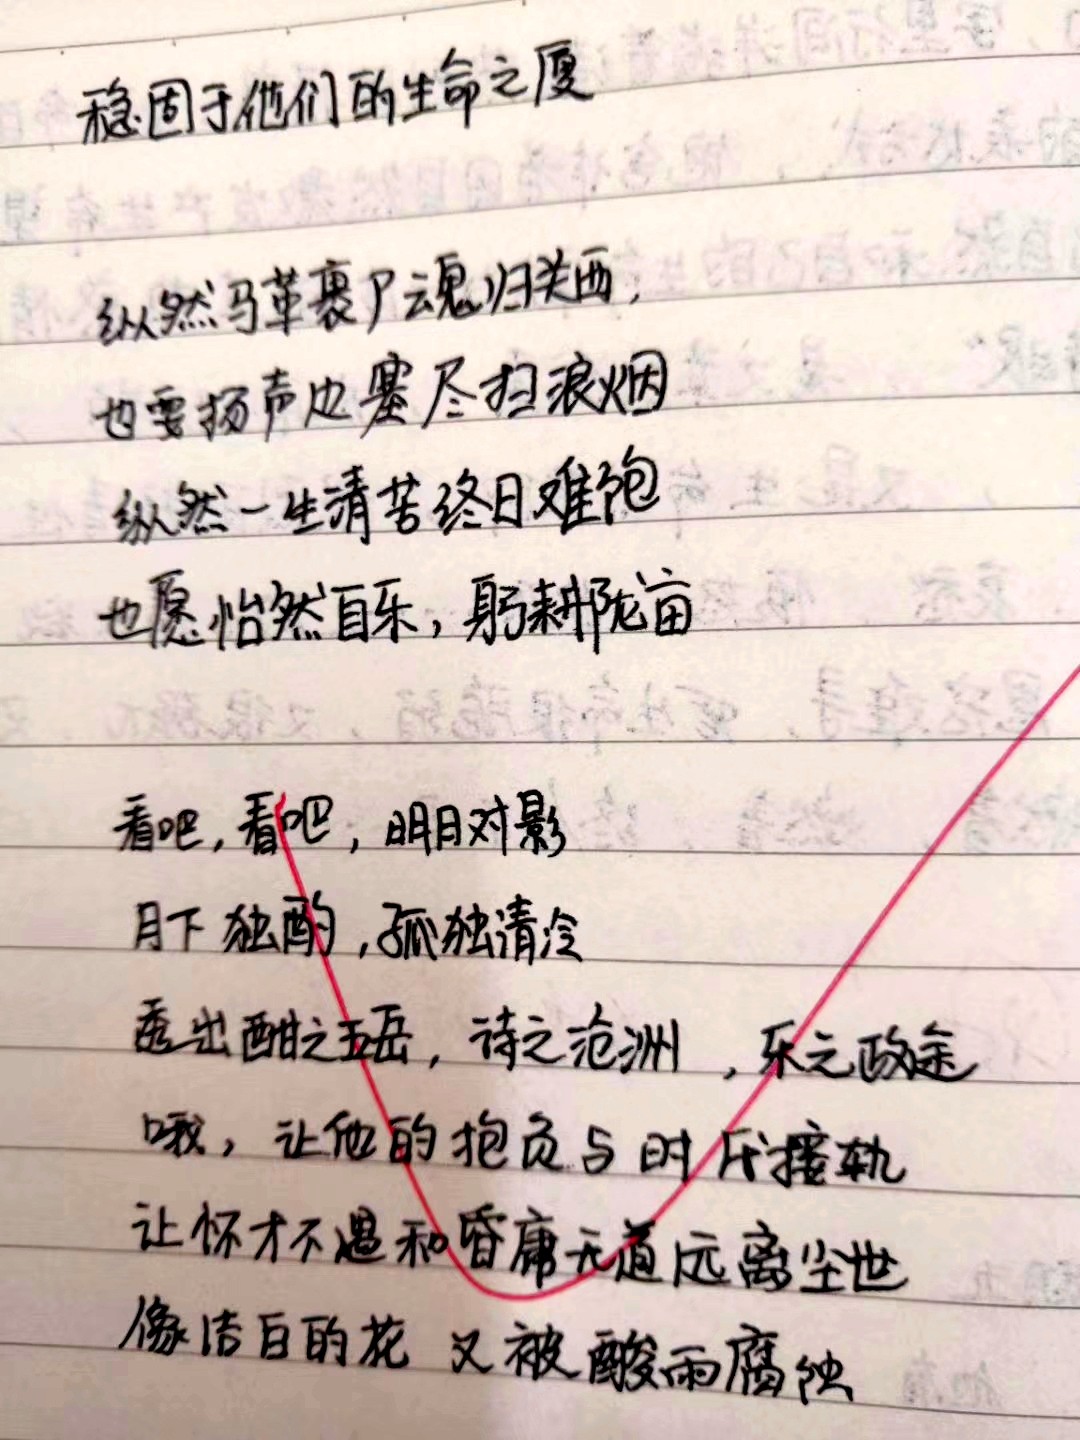 稳固于他们的生命之厦
纵然马革裹尸魂归关西,
也要扬声边塞尽扫浪烟
纵然一生清苦终日难饱
也愿怡然自乐,躬耕陇亩
看吧,看吧,明月对影
月下独酌,孤独清冷
透出酣之五岳,诗之沧洲,乐之政途
哦,让他的抱负与时代接轨
让怀才不遇和昏庸无道远离尘世
像洁白的花 又被酸雨腐蚀